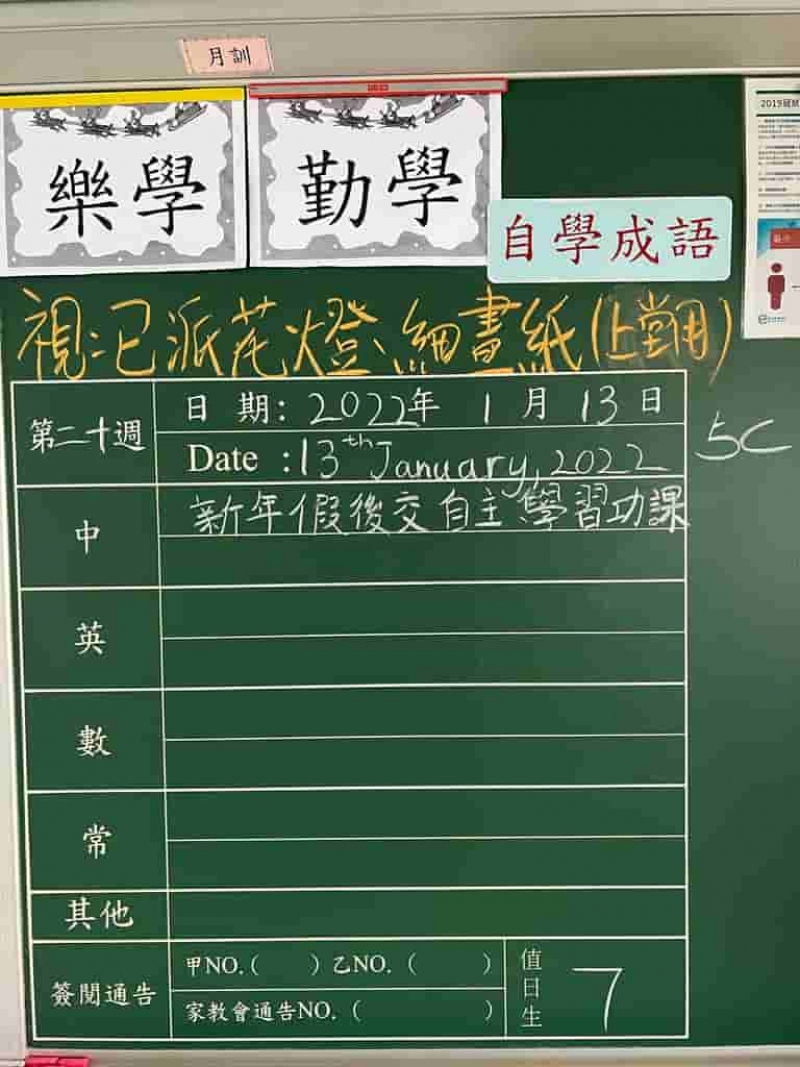 月訓
樂學
勤學
自學成語
視:已派花燈、細畫紙(上堂用)
第二十週
日 期: 2022年 1 月 13 日
Date :13th January, 2022
5C
中
新年假後交自主學習功課
英
數
常
其他
簽閱通告
甲NO.( ) 乙NO. ( )
家教會通告NO. ( )
值日生
7